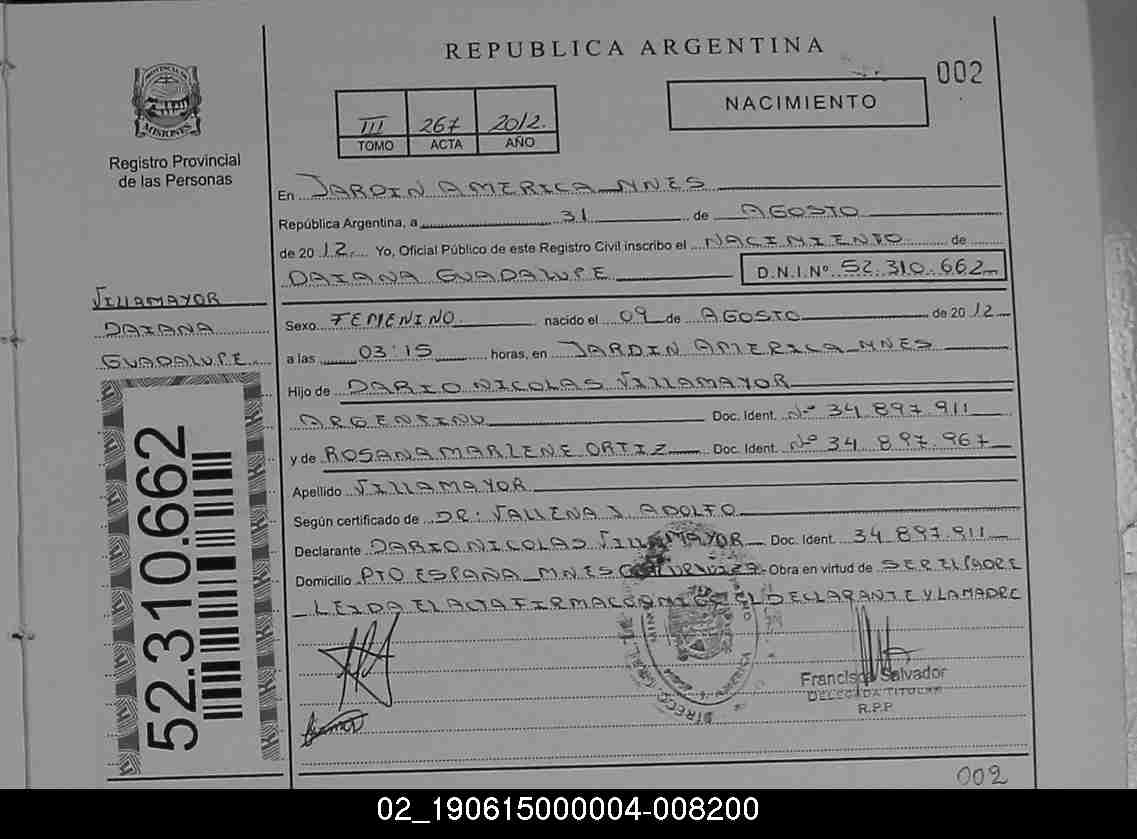 REPUBLICA ARGENTINA
002
NACIMIENTO
III 267 2012.
TOMO ACTA AÑO
PROVINCIA DE
MISIONES
Registro Provincial
de las Personas
En JARDIN AMERICA MNES
República Argentina, a 31 de AGOSTO
de 2012. Yo, Oficial Público de este Registro Civil inscribo el NACIMIENTO de
DAIANA GUADALUPE D.N.I.Nº 52.310.662
VILLAMAYOR
DAIANA
GUADALUPE.
Sexo FEMENINO nacido el 09 de AGOSTO de 2012
a las 03:15 horas, en JARDIN AMERICA MNES
Hijo de DARIO NICOLAS VILLAMAYOR
ARGENTINO Doc. Ident. Nº 34.897.911
y de ROSANA MARLENE ORTIZ Doc. Ident. Nº 34.897.967
Apellido VILLAMAYOR
Según certificado de DR: VALLENA J. ADOLFO
Declarante DARIO NICOLAS VILLAMAYOR Doc. Ident. 34.897.911
Domicilio PTO ESPAÑA MNES Obra en virtud de SER EL PADRE
LEIDA EL ACTA FIRMA CONMIGO EL DECLARANTE Y LA MADRE
52.310.662
Francisco Salvador
DELEGADA TITULAR
R.P.P
002
02_190615000004-008200